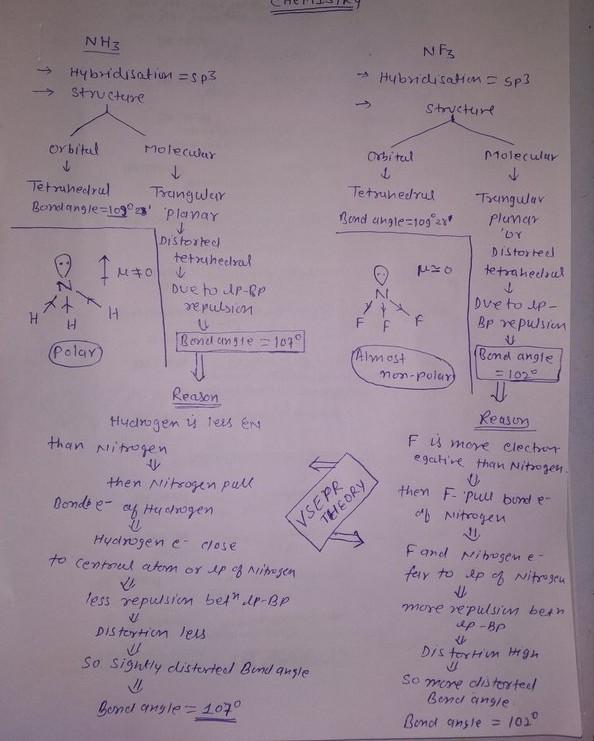 CHEMISTRY
NH3
→ Hybridisation = Sp3
→ Structure
Orbital
↓
Tetrahedral
Bond angle = 109°28'
Molecular
↓
Trangular
planar
↓
Distorted
tetrahedral
↓
Due to lp-Bp
repulsion
⇓
Bond angle = 107°
N
H H H
↑ μ≠0
Polar
⇓
Reason
Hydrogen is less EN
than Nitrogen
⇓
then Nitrogen pull
Bond e- of Hydrogen
⇓
Hydrogen e- close
to central atom or lp of Nitrogen
⇓
less repulsion betn lp-BP
⇓
Distortion less
⇓
So sightly distorted Bond angle
⇓
Bond angle = 107°
VSEPR
THEORY
NF3
→ Hybridisation = Sp3
→ Structure
Orbital
↓
Tetrahedral
Bond angle = 109°28'
Molecular
↓
Trangular
planar
or
Distorted
tetrahedral
↓
Due to lp-
Bp repulsion
⇓
Bond angle
= 102°
N
F F F
μ≃0
Almost
non-polar
⇓
Reason
F is more electron
egative than Nitrogen.
⇓
then F- pull bond e-
of Nitrogen
⇓
F and Nitrogen e-
far to lp of Nitrogen
⇓
more repulsion betn
lp-BP
⇓
Distortion High
⇓
So more distorted
Bond angle
Bond angle = 102°